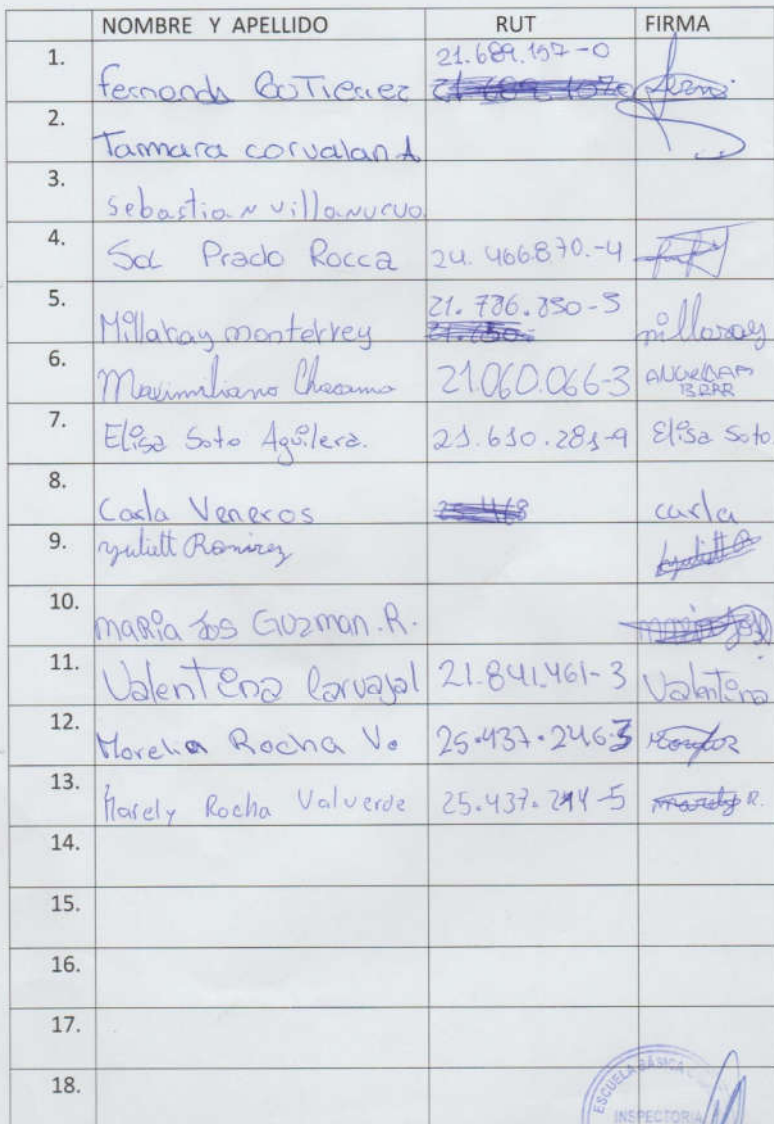 NOMBRE Y APELLIDO RUT FIRMA
1. Fernanda GuTierrez 21.689.197-0
2. Tammara corvalan A
3. Sebastian villanueva
4. Sol Prado Rocca 24.466.870.-4
5. Millaray monterrey 21.786.850-5 millaray
6. Maximiliano 21.060.066-3
7. Elisa Soto Aguilera. 21.610.281-9 Elisa Soto.
8. Carla Veneros carla
9. yuliett Ramirez
10. maRia Jos Guzman.R.
11. Valentina Carvajal 21.841.461-3 Valentina
12. Morelia Rocha V. 25.437.246-3
13. Marely Rocha Valverde 25.437.244-5 marely R.
14.
15.
16.
17.
18.
ESCUELA BÁSICA
INSPECTORIA